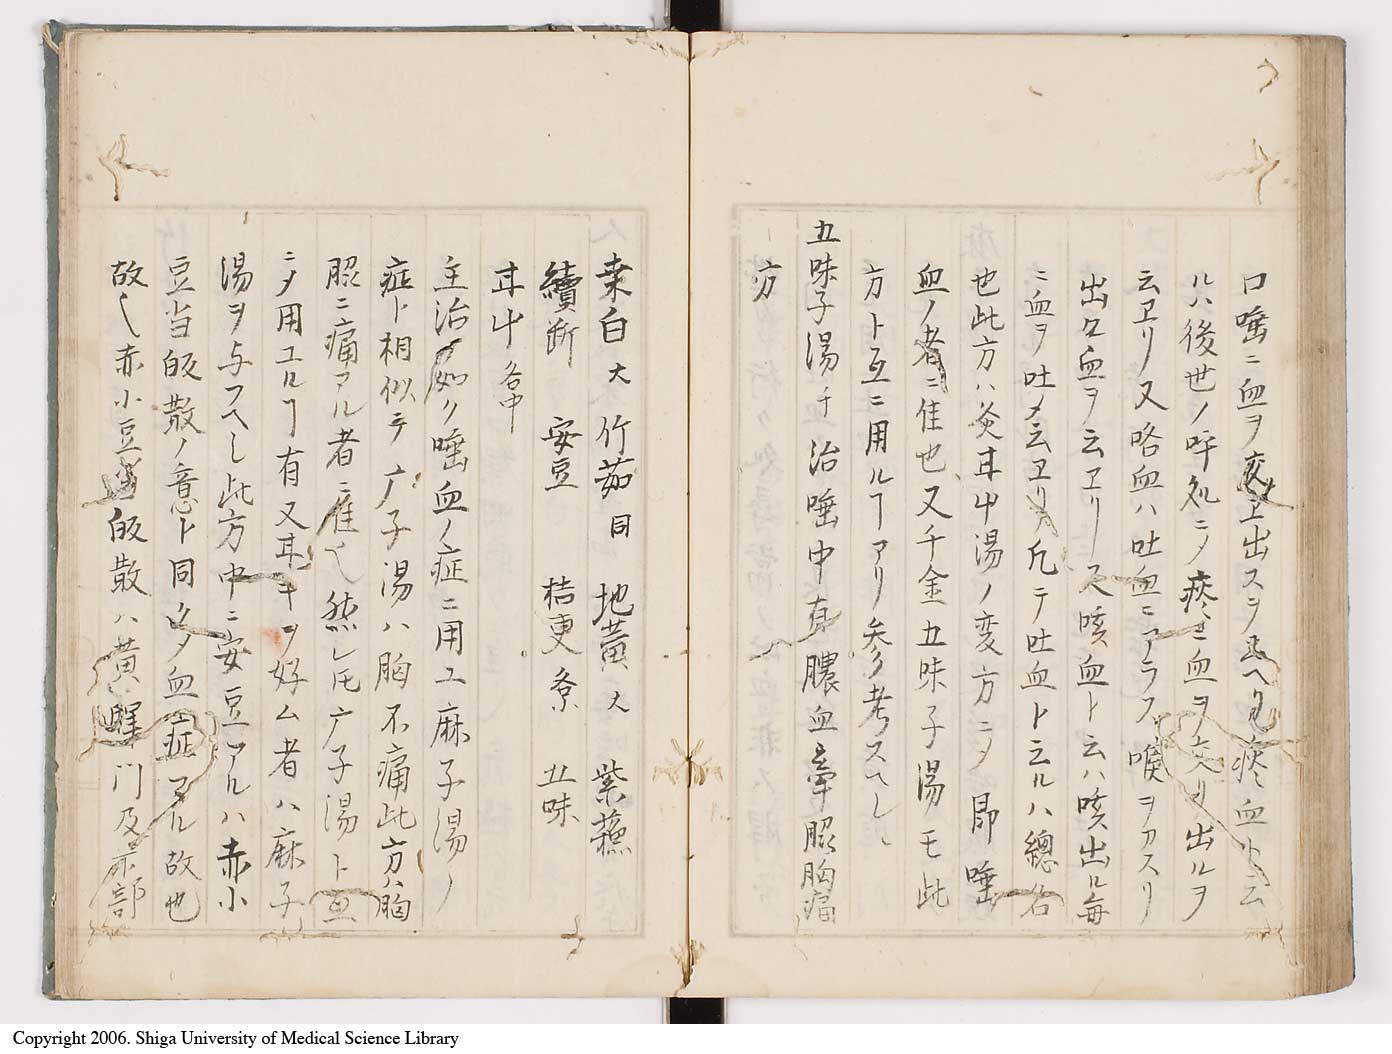 口唾ニ血ヲ 上出スヲ 痰血ト云
ルハ後世ノ呼処ニノ痰ニ血ヲ 出ルヲ
云ヱリ又咯血ハ吐血ニアラス喉ヲカスリ
出ク血ヲ云ヱリ又咳血ト云ハ咳出ル毎
ニ血ヲ吐ノ云ヱリ凡テ吐血ト云ルハ總名
也此方ハ炙耳中湯ノ変方ニノ即唾
血ノ者ニ佳也又千金五味子湯モ此
方ト互ニ用ルヿアリ参考スヘし
五味子湯千治唾中有膿血牽胸痛
方
桒白大竹茹同地黄大紫蘓
續断 安豆 桔更各 五味
耳中各中
主治如ク唾血ノ症ニ用ユ麻子湯ノ
症ト相似テ广子湯ハ胸不痛此方ハ胸
ニ痛アル者ニ隹也然レ圧广子湯ト互
ニノ用ユルヿ有又耳キヲ好ム者ハ麻子
湯ヲ与フヘし此方中ニ安豆アルハ赤小
豆当皈散ノ意ト同クノ血症アル故也
故也赤小豆当皈散ハ黄 門及 部
Copyright 2006. Shiga University of Medical Science Library